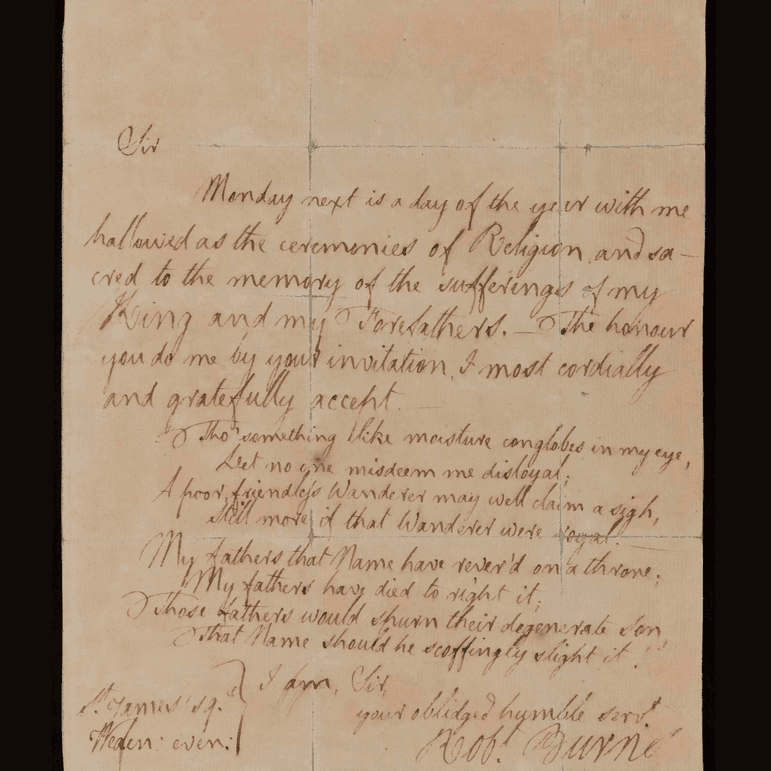 Sir
Monday next is a day of the year with me
hallowed as the ceremonies of Religion and sa-
cred to the memory of the sufferings of my
King and my Forefathers. — The honour
you do me by your invitation, I most cordially
and gratefully accept. —
Tho' something like moisture conglobes in my eye,
Let no one misdeem me disloyal;
A poor, friendless Wanderer may well claim a sigh,
Still more if that Wanderer were royal.
My fathers that Name have rever'd on a throne;
My fathers have died to right it;
Those fathers would spurn their degenerate Son
That Name should he scoffingly slight it!
I am, Sir,
your obliged humble servt
Robt Burns
St James' sq.
Weden: even: